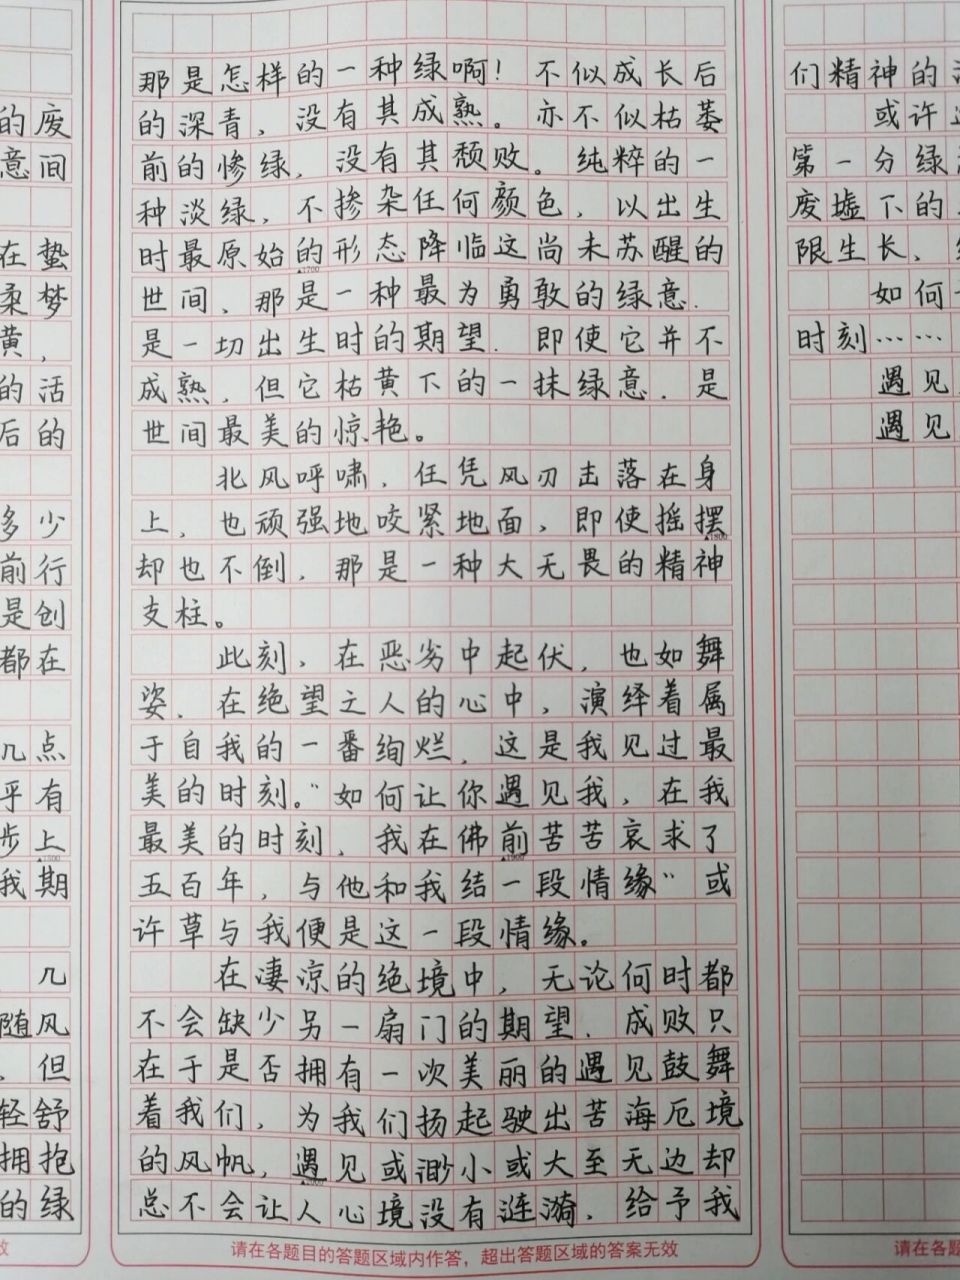 的废
意间
在蛰
柔梦
黄，
的活
后的
多少
前行
是创
都在
几点
乎有
步上
我期
几
随风
，但
轻舒
拥抱
的绿
那是怎样的一种绿啊！不似成长后
的深青，没有其成熟。亦不似枯萎
前的惨绿，没有其颓败。纯粹的一
种淡绿，不掺杂任何颜色，以出生
时最原始的形态降临这尚未苏醒的
▲1700
世间，那是一种最为勇敢的绿意.
是一切出生时的期望.即使它并不
成熟，但它枯黄下的一抹绿意.是
世间最美的惊艳。
北风呼啸，任凭风刃击落在身
上，也顽强地咬紧地面，即使摇摆
▲1800
却也不倒，那是一种大无畏的精神
支柱。
此刻，在恶劣中起伏，也如舞
姿.在绝望之人的心中，演绎着属
于自我的一番绚烂，这是我见过最
美的时刻。“如何让你遇见我，在我
最美的时刻，我在佛前苦苦哀求了
▲1900
五百年，与他和我结一段情缘”或
许草与我便是这一段情缘。
在凄凉的绝境中，无论何时都
不会缺少另一扇门的期望.成败只
在于是否拥有一次美丽的遇见鼓舞
着我们，为我们扬起驶出苦海厄境
的风帆，遇见或渺小或大至无边却
总不会让人心境没有涟漪.给予我
请在各题目的答题区域内作答，超出答题区域的答案无效
们精神的
或许
第一分绿
废墟下的
限生长，
如何
时刻……
遇见
遇见
请在各题